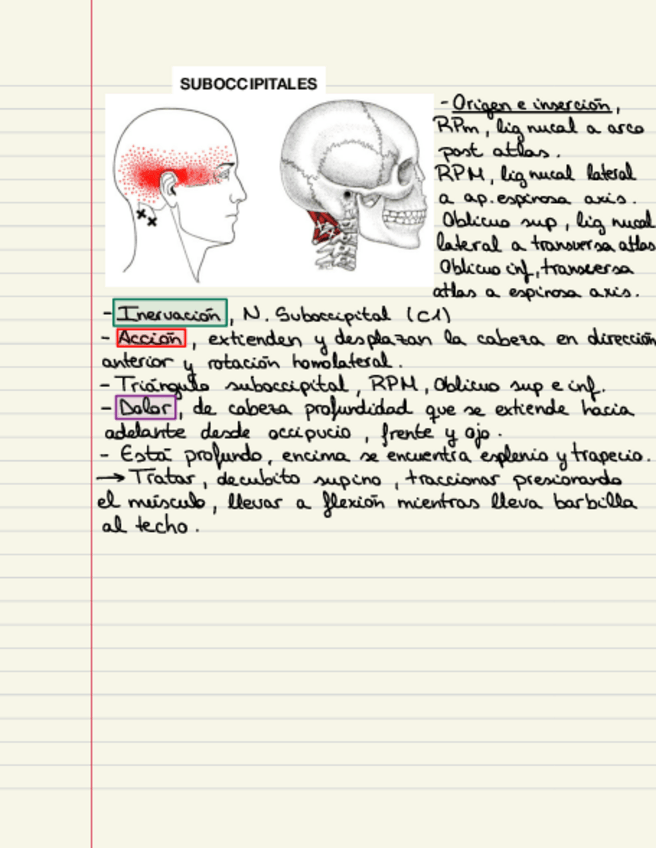 SUBOCCIPITALES
- Origen e inserción,
RPm, lig nucal a arco
post atlas.
RPM, lig nucal lateral
a ap. espinosa axis.
Oblicuo sup, lig nucal
lateral a transversa atlas
Oblicuo inf, transversa
atlas a espinosa axis.
- Inervación, N. Suboccipital (C1)
- Acción, extienden y desplazan la cabeza en dirección
anterior y rotación homolateral.
- Triángulo suboccipital, RPM, Oblicuo sup e inf.
- Dolor, de cabeza profundidad que se extiende hacia
adelante desde occipucio, frente y ojo.
- Está profundo, encima se encuentra esplenio y trapecio.
→ Tratar, decubito supino, traccionar presionando
el músculo, llevar a flexión mientras lleva barbilla
al techo.